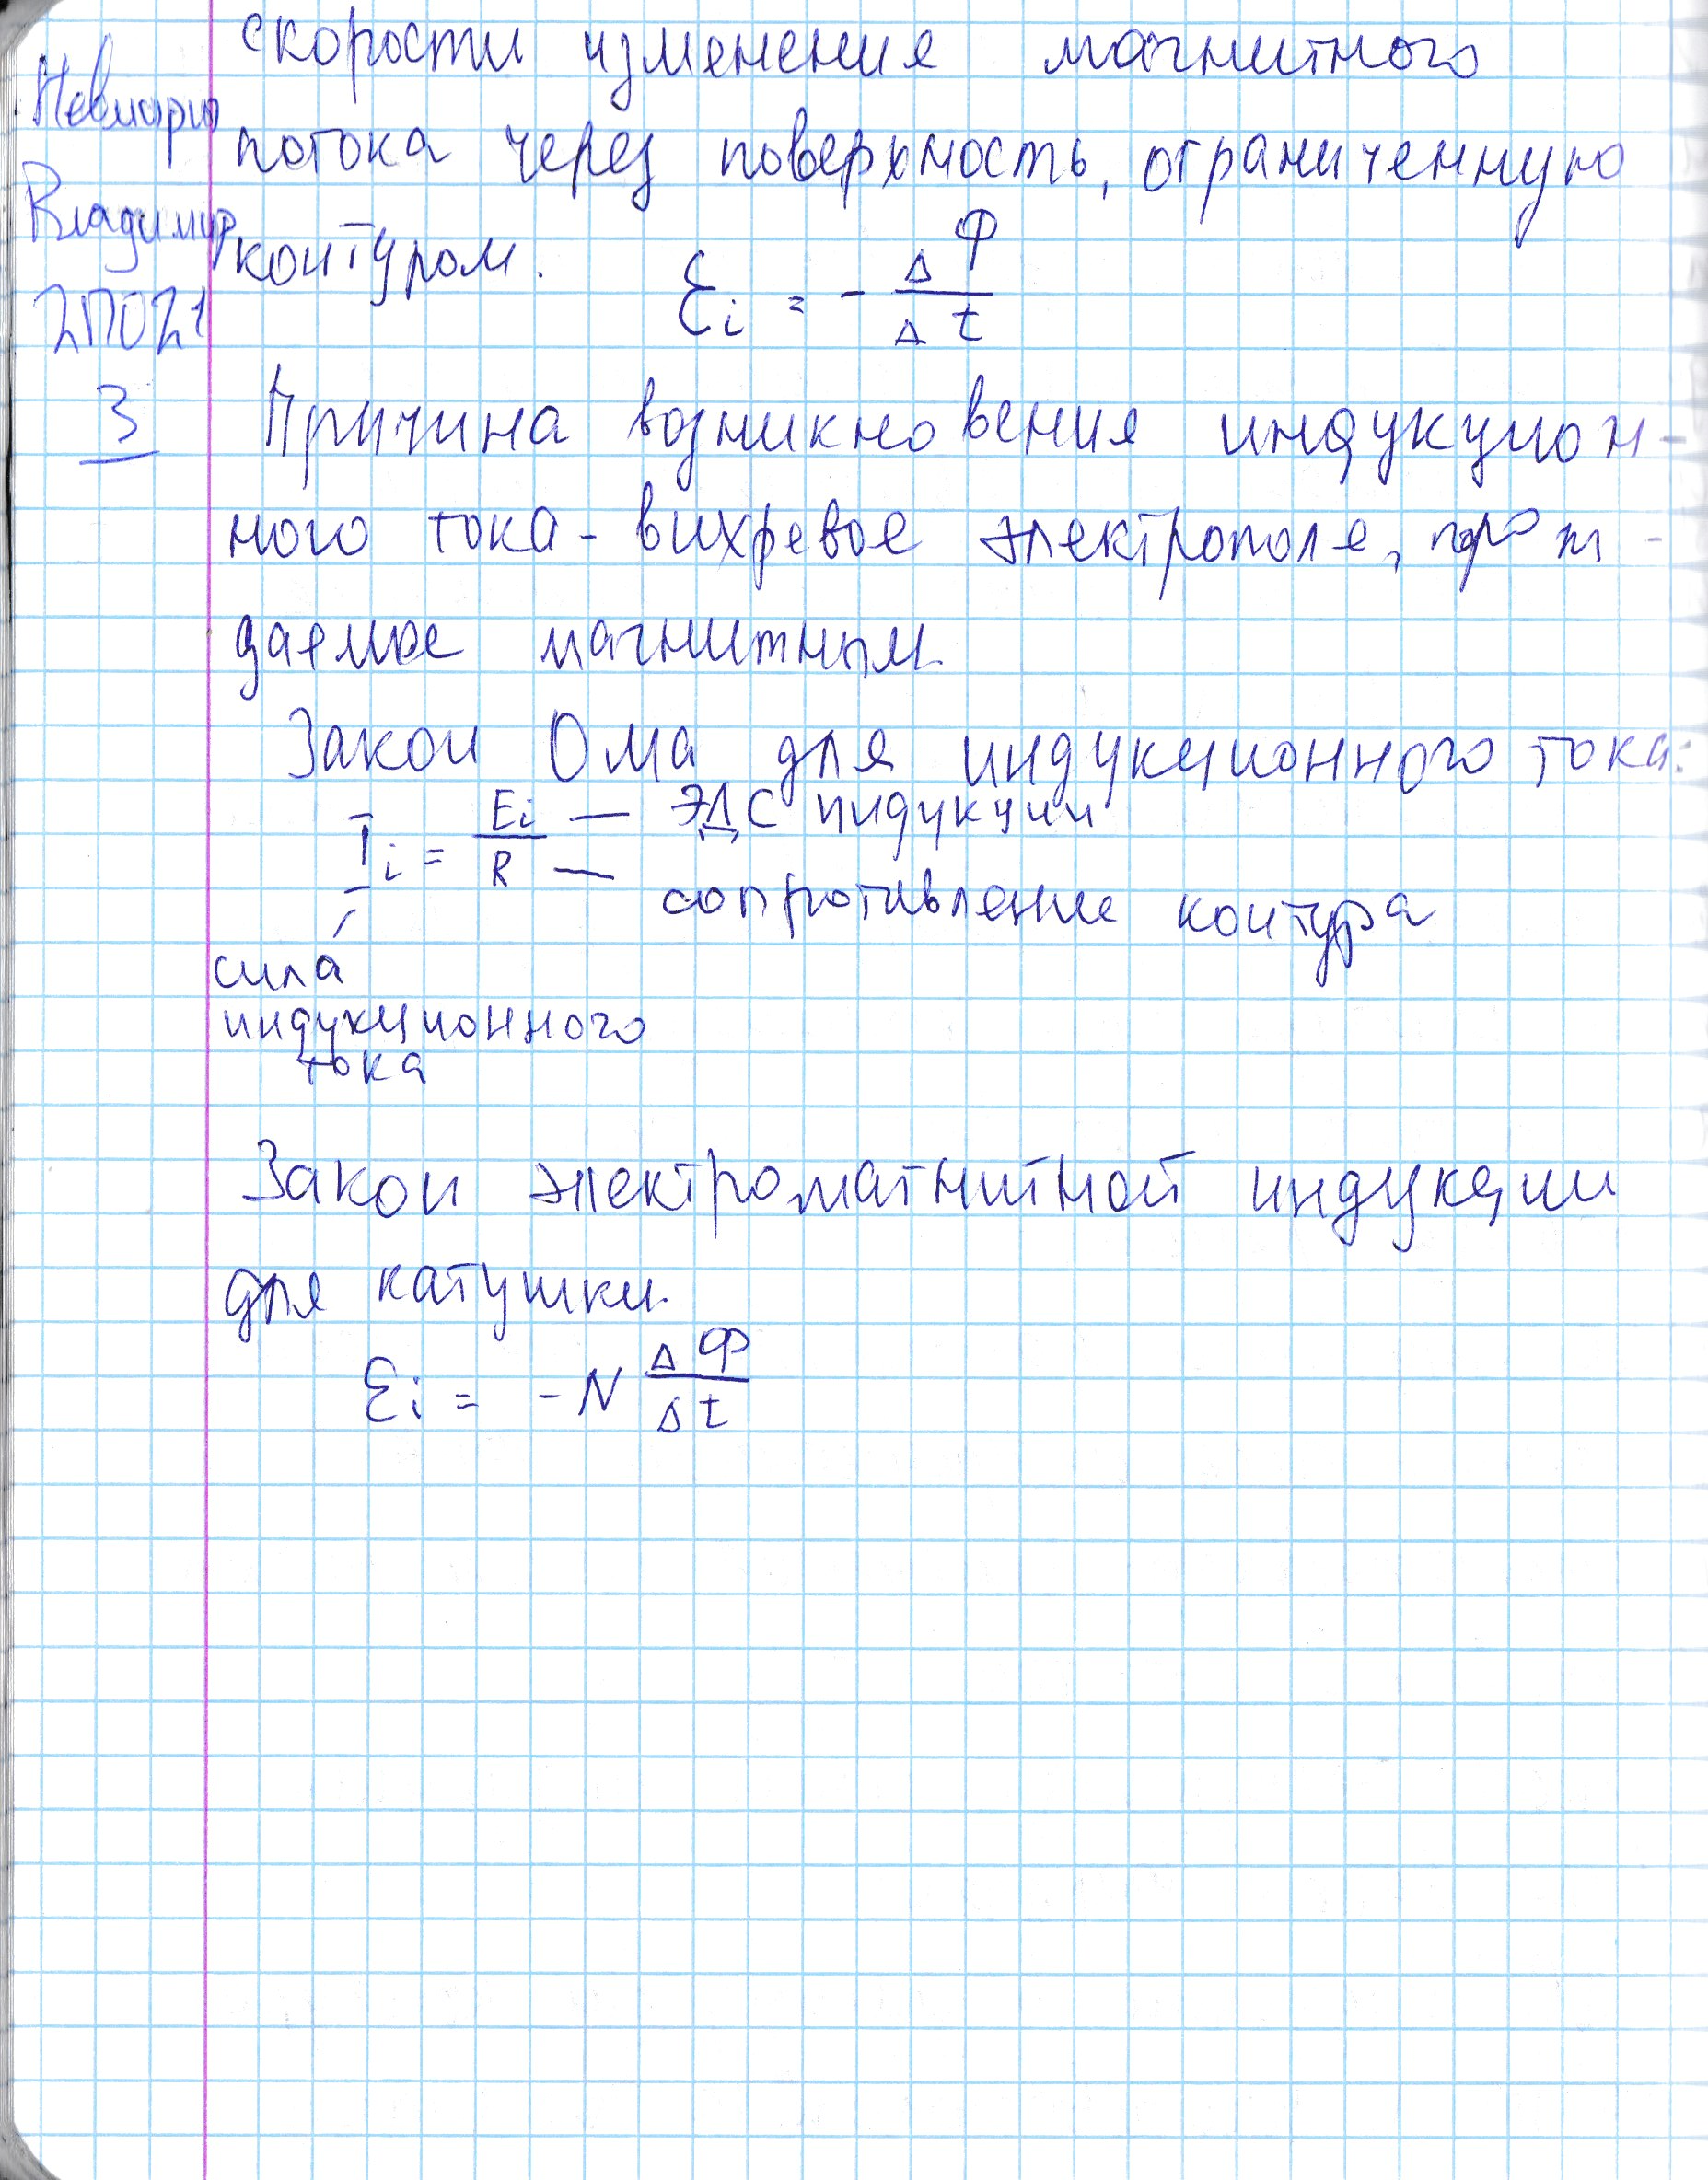 скорости изменения магнитного
потока через поверхность, ограниченную
контуром.
Ɛi = - ΔФ / Δt
Владимир
2ПО21
3
Причина возникновения индукцион-
ного тока - вихревое электрополе, порож-
даемое магнитным
Закон Ома для индукционного тока:
Ii = Ei / R
— ЭДС индукции
— сопротивление контура
сила
индукционного
тока
Закон электромагнитной индукции
для катушки
Ɛi = -N ΔФ / Δt